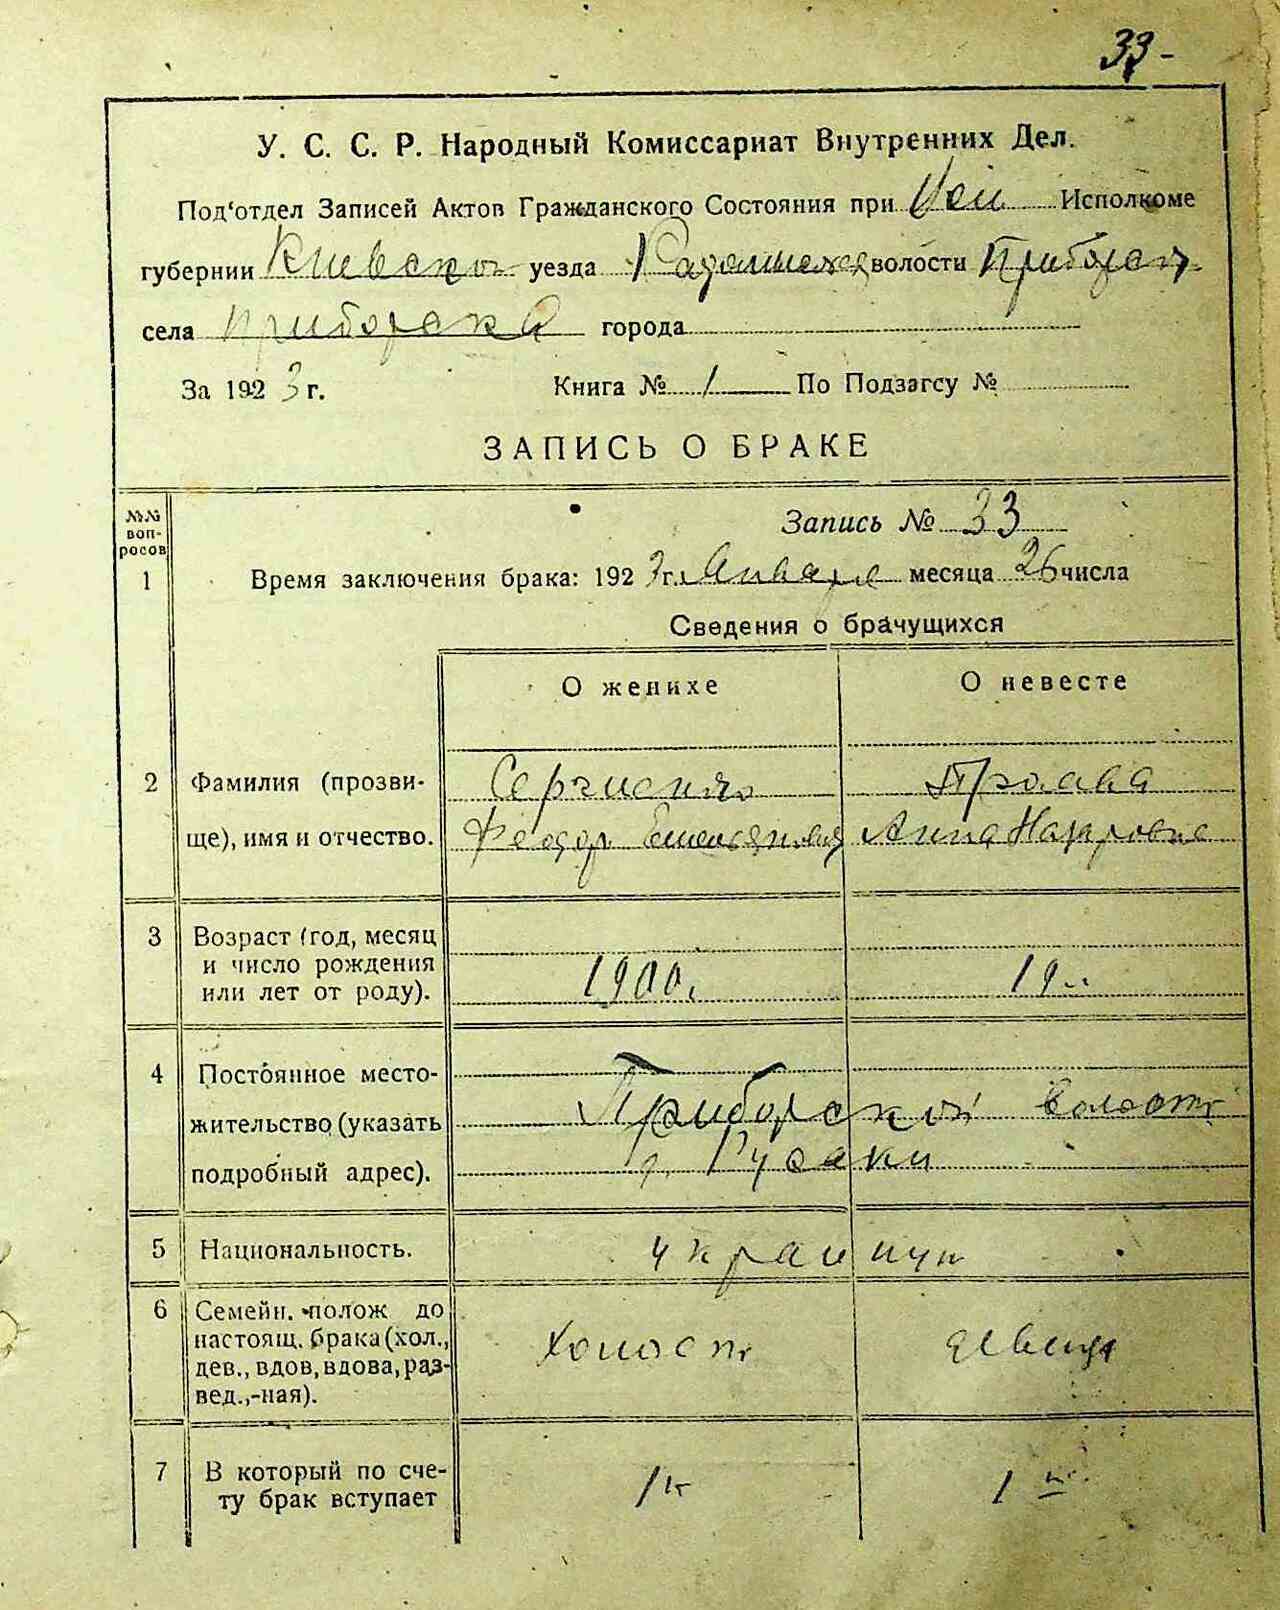 33-
У. С. С. Р. Народный Комиссариат Внутренних Дел.
Под‘отдел Записей Актов Гражданского Состояния при Исполкоме
губернии Киевской уезда волости Приборск
села Приборска города
За 1923 г. Книга № 1 По Подзагсу №
ЗАПИСЬ О БРАКЕ
№№ воп-росов
Запись № 33
1 Время заключения брака: 1923 г. Января месяца 26 числа
Сведения о брачущихся
О женихе О невесте
2 Фамилия (прозви- Сергиенко
ще), имя и отчество. Феодор Емельянов Анна Назаровна
3 Возраст (год, месяц
и число рождения 1900. 19 л.
или лет от роду).
4 Постоянное место-
жительство (указать Приборской волости
подробный адрес). Русаки
5 Национальность. украинцы
6 Семейн. полож до
настоящ. брака (хол., Холост девица
дев., вдов, вдова, раз-
вед.,-ная).
7 В который по сче- 1й 1й
ту брак вступает